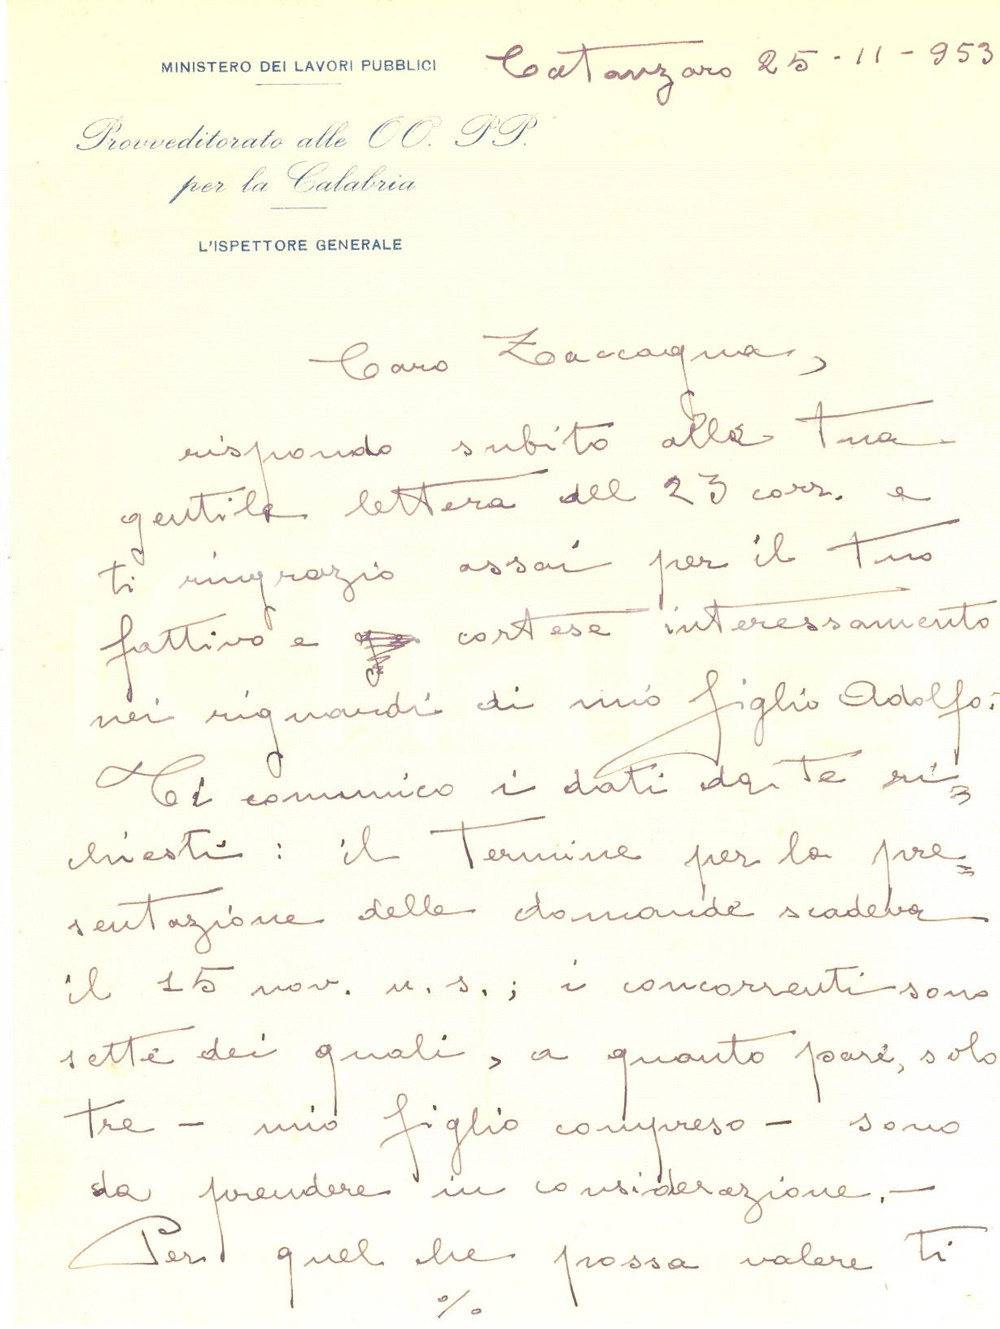 MINISTERO DEI LAVORI PUBBLICI
Catanzaro 25-11-953
Provveditorato alle OO. PP.
per la Calabria
L'ISPETTORE GENERALE
Caro Zaccagna,
rispondo subito alla tua
gentile lettera del 23 corr. e
ti ringrazio assai per il tuo
fattivo e cortese interessamento
nei riguardi di mio figlio Adolfo.
Ti comunico i dati da te ri=
chiesti: il termine per la pre=
sentazione delle domande scadeva
il 15 nov. u.s.; i concorrenti sono
sette dei quali, a quanto pare, solo
tre - mio figlio compreso - sono
da prendere in considerazione.-
Per quel che possa valere ti
%